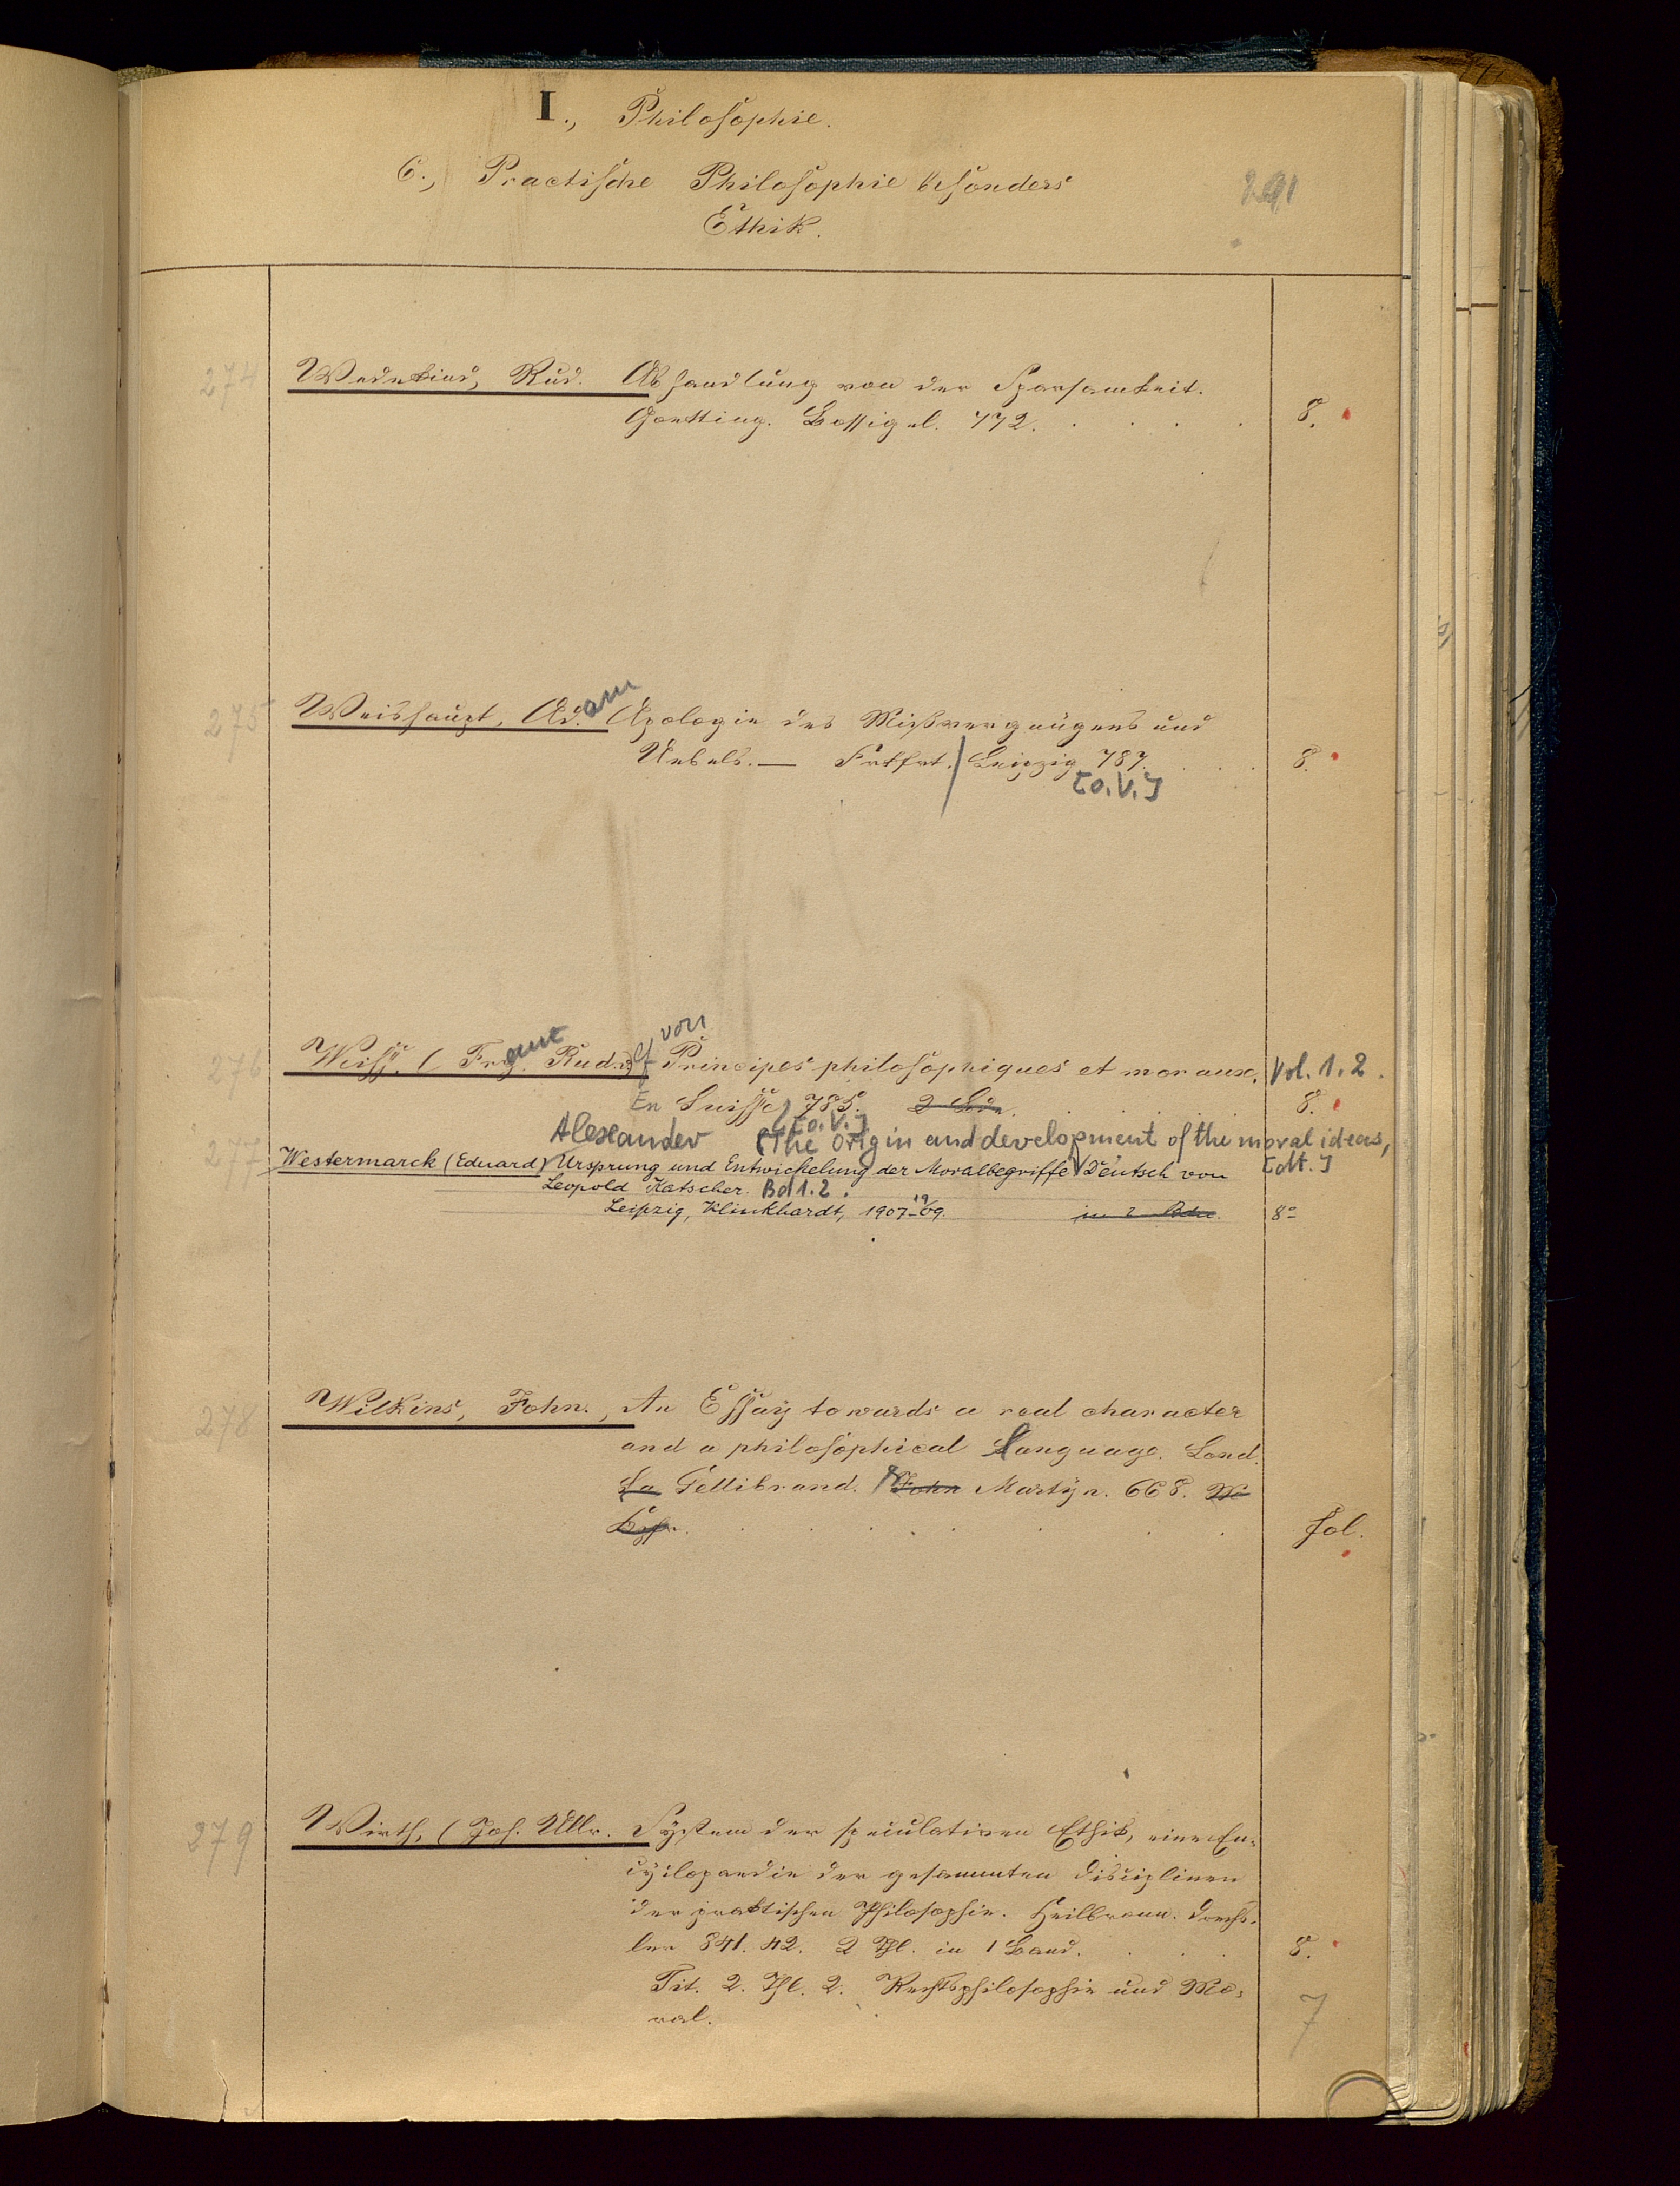 I., Philosophie.
6., Practische Philosophie besonders
Ethik.
291
274 Wedekind, Rud. Abhandlung von der Sparsamkeit.
Goetting. Bossigel. 772. 8.
275 Weishaupt, Ad.am Apologie des Missvergnügens und
Uebels. — Frkfrt. / Leipzig 787. 8.
[o.V.]
von
276 Weiss. ( Frç. Rud.olf Principes philosophiques et moraux. Vol. 1. 2.
En Suisse, 785. 8.
[o.V.]
Alexander (The Origin and development of the moral ideas,
277 Westermarck (Eduard) Ursprung und Entwickelung der Moralbegriffe Deutsch von [dt.]
Leopold Katscher. Bd 1. 2.
Leipzig, Klinkhardt, 1907-1909. in 2 Bdn. 8°
278 Wilkins, John., An Essay towards a real character
and a philosophical Language. Lond.
Sa Gellibrand. John Martyn. 668.
fol.
279 Wirth, (Joh. Ullr. System der speculativen Ethik, eine En-
cyclopaedie der gesammten Disciplinen
der praktischen Philosophie. Heilbronn. Drechs-
ler 841. 42. 2 Thl. in 1 Band. 8.
Tit. 2. Thl. 2. Rechtsphilosophie und Mo-
ral.
7